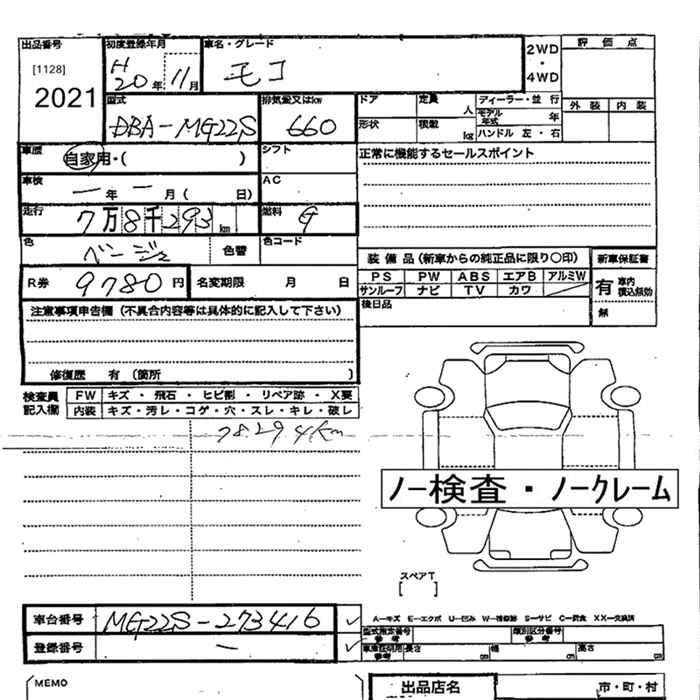 出品番号 初度登録年月 車名・グレード 2WD ・ 4WD 評価点
[1128] H20年11月 モコ
2021 外装 内装
型式 排気量又はkw ドア 定員 人 ディーラー・並行
DBA-MG22S 660 形状 積載 kg モデル年式 年
ハンドル 左・右
車歴 自家用・( ) シフト 正常に機能するセールスポイント
車検 ー年 ー月( 日) AC
走行 7万8千293km 燃料 G
色 ベージュ 色替 色コード
装備品(新車からの純正品に限り○印) 新車保証書
R券 9780円 名変期限 月 日 PS PW ABS エアB アルミW 有 車内積込無効
サンルーフ ナビ TV カワ
後日品 無
注意事項申告欄(不具合内容等は具体的に記入して下さい)
修復歴 有(箇所 )
検査員記入欄 FW キズ・飛石・ヒビ割・リペア跡・X要
内装 キズ・汚レ・コゲ・穴・スレ・キレ・破レ
78294km
ノー検査・ノークレーム
スペアT
[ ]
車台番号 MG22S-273416 ✓ A−キズ E−エクボ U−凹み W−補修跡 S−サビ C−腐食 XX−交換済
型式指定番号 参考 類別区分番号 参考
登録番号 ー ✓ 車庫証明用 参考 長さ cm 幅 cm 高さ cm
MEMO 出品店名 市・町・村